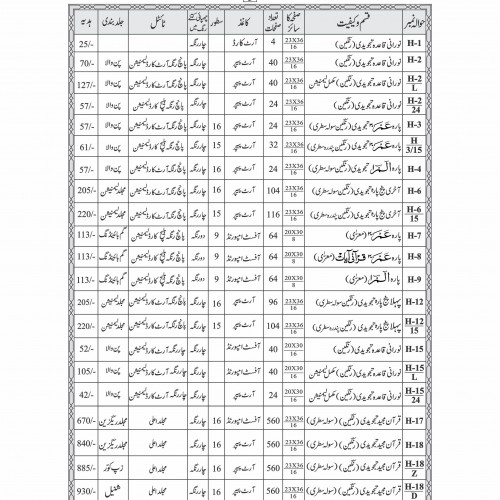 حوالہ نمبر قسم و کیفیت صفحے کا سائز تعداد صفحات کاغذ سطور چھپائی کتنے رنگ میں ٹائٹل جلد بندی ہدیہ
H-1 نورانی قاعدہ تجویدی (رنگین) 23X36/16 4 آرٹ کارڈ چار رنگہ 25/-
H-2 نورانی قاعدہ تجویدی (رنگین) 23X36/16 40 آرٹ پیپر چار رنگہ پانچ رنگہ آرٹ کارڈ لیمینیشن پن والا 70/-
H-2/L نورانی قاعدہ تجویدی (رنگین) مکمل لیمینیشن 23X36/16 40 آرٹ پیپر چار رنگہ پانچ رنگہ آرٹ کارڈ لیمینیشن پن والا 127/-
H-2/24 نورانی قاعدہ تجویدی (رنگین) 23X36/16 24 آرٹ پیپر چار رنگہ پانچ رنگہ کارڈ لیمینیشن پن والا 57/-
H-3 پارہ عم تجویدی (رنگین سولہ سطری) 23X36/16 24 آرٹ پیپر 16 چار رنگہ پانچ رنگہ کارڈ لیمینیشن پن والا 57/-
H/3/15 پارہ عم تجویدی (رنگین پندرہ سطری) 23X36/16 32 آرٹ پیپر 15 چار رنگہ پانچ رنگہ کارڈ لیمینیشن پن والا 61/-
H-4 پارہ الم تجویدی (رنگین سولہ سطری) 23X36/16 24 آرٹ پیپر 16 چار رنگہ پانچ رنگہ آرٹ کارڈ لیمینیشن پن والا 57/-
H-6 آخری پنج پارہ تجویدی (رنگین سولہ سطری) 23X36/16 104 آرٹ پیپر 16 چار رنگہ پانچ رنگہ آرٹ کارڈ لیمینیشن مجلد لیمینیشن 205/-
H-6/15 آخری پنج پارہ تجویدی (رنگین پندرہ سطری) 23X36/16 116 آرٹ پیپر 15 چار رنگہ پانچ رنگہ کارڈ لیمینیشن مجلد لیمینیشن 220/-
H-7 پارہ عم (معرّٰی) 20X30/8 64 آفسٹ امپورٹڈ 9 دو رنگہ پانچ رنگہ کارڈ لیمینیشن گم بائنڈنگ 113/-
H-8 پارہ عم قرآنی آیات (معرّٰی) 20X30/8 64 آفسٹ امپورٹڈ 9 دو رنگہ پانچ رنگہ کارڈ لیمینیشن گم بائنڈنگ 113/-
H-9 پارہ الم (معرّٰی) 20X30/8 64 آفسٹ امپورٹڈ 9 دو رنگہ پانچ رنگہ کارڈ لیمینیشن گم بائنڈنگ 113/-
H-12 پہلا پنج پارہ تجویدی (رنگین سولہ سطری) 23X36/16 96 آرٹ پیپر 16 چار رنگہ چار رنگہ آرٹ کارڈ لیمینیشن مجلد لیمینیشن 205/-
H-12/15 پہلا پنج پارہ تجویدی (رنگین پندرہ سطری) 23X36/16 104 آرٹ پیپر 15 چار رنگہ چار رنگہ آرٹ کارڈ لیمینیشن مجلد لیمینیشن 220/-
H-15 نورانی قاعدہ تجویدی (رنگین) 20X30/16 40 آفسٹ امپورٹڈ چار رنگہ چار رنگہ آرٹ کارڈ لیمینیشن پن والا 52/-
H-15/L نورانی قاعدہ تجویدی (رنگین) مکمل لیمینیشن 20X30/16 40 آرٹ پیپر چار رنگہ چار رنگہ آرٹ کارڈ لیمینیشن پن والا 105/-
H-15/24 نورانی قاعدہ تجویدی (رنگین) مکمل لیمینیشن 20X30/16 24 آرٹ پیپر چار رنگہ چار رنگہ آرٹ کارڈ لیمینیشن پن والا 42/-
H-17 قرآن مجید تجویدی (رنگین) (سولہ سطری) 23X36/16 560 آفسٹ امپورٹڈ 16 چار رنگہ مجلد اعلیٰ مجلد ریگزین 670/-
H-18 قرآن مجید تجویدی (رنگین) (سولہ سطری) 23X36/16 560 آرٹ پیپر 16 چار رنگہ مجلد اعلیٰ مجلد ریگزین 840/-
H-18/Z قرآن مجید تجویدی (رنگین) (سولہ سطری) 23X36/16 560 آرٹ پیپر 16 چار رنگہ مجلد اعلیٰ زپ کور 885/-
H-18/D قرآن مجید تجویدی (رنگین) (سولہ سطری) 23X36/16 560 آرٹ پیپر 16 چار رنگہ مجلد اعلیٰ شنیل 930/-